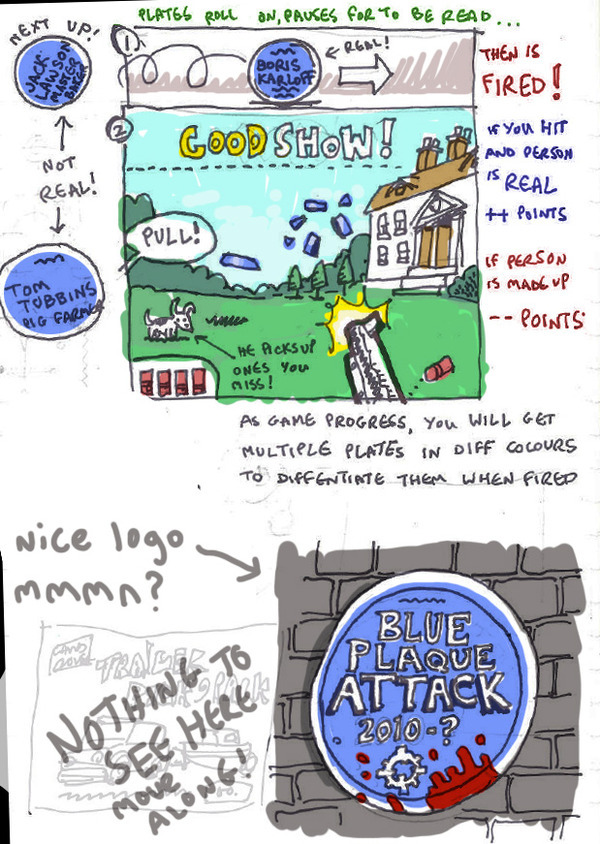 PLATES ROLL ON, PAUSES FOR TO BE READ...
NEXT UP!
JACK
LAWSON
MASTER
BAKER
NOT
REAL!
TOM
TOBBINS
PIG FARMER
1
BORIS
KARLOFF
REAL!
THEN IS
FIRED!
2
GOOD SHOW!
PULL!
HE PICKS UP
ONES YOU
MISS!
IF YOU HIT
AND PERSON
IS REAL
++ POINTS
IF PERSON
IS MADE UP
-- POINTS
AS GAME PROGRESS, YOU WILL GET
MULTIPLE PLATES IN DIFF COLOURS
TO DIFFENTIATE THEM WHEN FIRED
Nice logo
mmmn?
BLUE
PLAQUE
ATTACK
2010-?
NOTHING TO
SEE HERE
MOVE
ALONG!